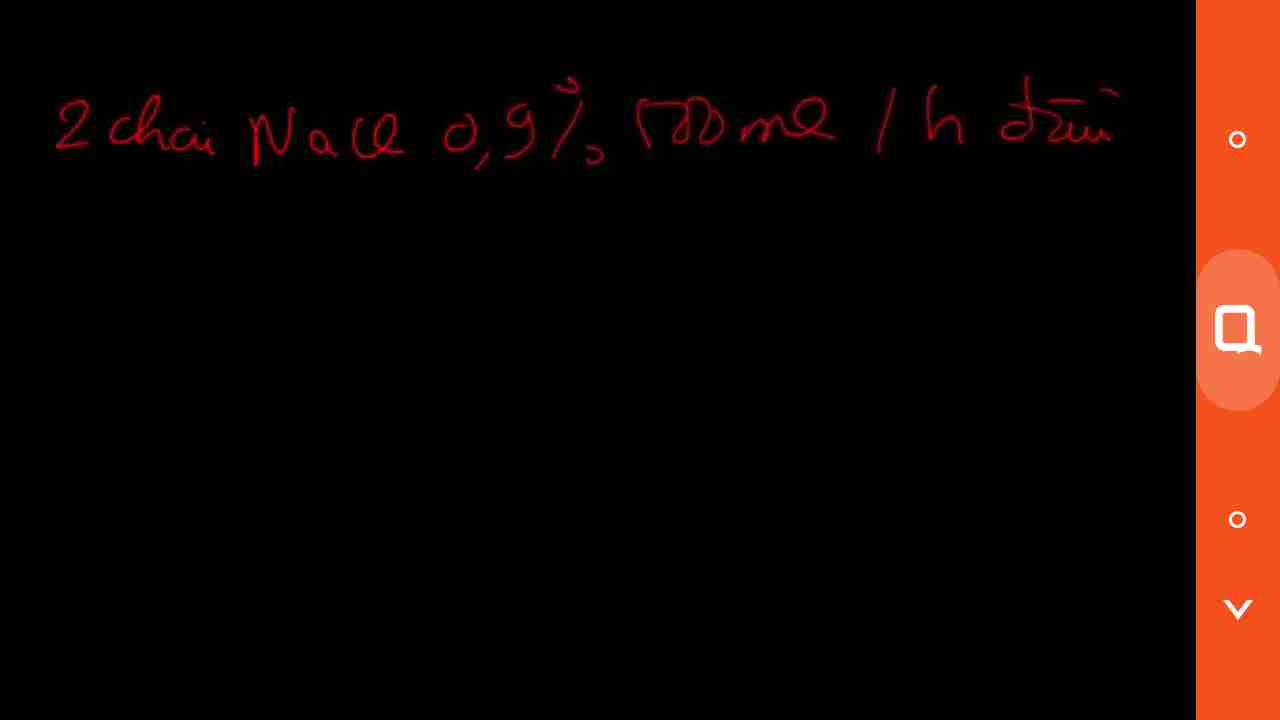 2 chai NaCl 0,9% 500ml / h đầu